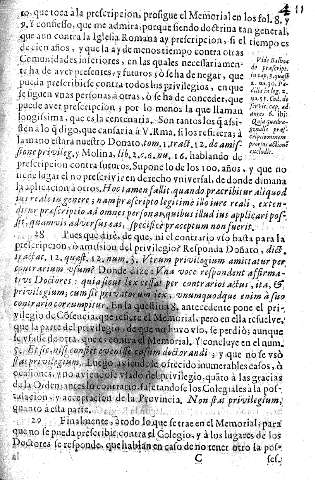 4 11
to, que toca à la prescripcion, prosigue el Memorial en los fol. 8. y
9. Y confiesso, que me admira; porque siendo doctrina tan general,
que aun contra la Iglesia Romana ay prescripcion, si el tiempo es
de cien años, y que la ay de menos tiempo contra otras
Comunidades inferiores, en las quales necessariamen-
te ha de aver presentes, y futuros, ò se ha de negar, que
pueda prescribirse contra todos los privilegios, en que
se siguen vnas personas à otras, ò se ha de conceder, que
puede aver prescripcion, y por lo menos la que llaman
longissima, que es la centenaria. Son tantos los q̃ assi-
sten à lo q̃ digo, que cansaria à V. Rma. si los refiriera; y
llamo estarà nuestro Donato, tom, 1, tract, 12, de amis-
sione privileg, y Molina, lib, 2. c. 6, nu, 16. hablando de
prescripcion contra futuros. Supone lo de los 100. años, y que no
tiene lugar el no prescrivir en derecho vniversal, de donde dimana
la aplicacion à otros. Hoc tamen fallit, quando præscribitur aliquod
ius reale in genere; nam præscriptio legitimè illo iure reali, exten-
ditur præscriptio ad omnes personas, quibus illud ius applicari pos-
sit, quamvis adversus eas, specificè præceptum non fuerit.
28 Pues que dirè, de que, ni el contrario vso basta para la
prescripcion, ò amission del privilegio? Responda Donato, dict,
tract, 12, quæst. 12, num. 3. Virum privilegium amittatur per
contrarium vsum? Donde dize: Vna voce respondent affirma-
tivè Doctores: quia sicut lex cessat per contrarios actus, ita, &
privilegium; cum sit privatorum lex, vnumquodque enim à suo
contrario corrumpitur. En la question 8. antecedente pone el pri-
vilegio de Cosencia, que refiere el Memorial; pero en ella resuelve,
que la parte del privilegio, de que no huvo vso, se perdiò; aunque
se vsasse de otra, que es contra el Memorial. Y concluye en el num.
Luego, aviendose ofrecido inumerables casos, ò
ocasiones, y no aviendose vsado del privilegio, quãto à las gracias
de la Orden, antes lo contrario, sujetandose los Colegiales à la pos-
tulacion, y acceptacion de la Provincia. Non stat privilegium,
quanto à esta parte.
29 Finalmente, à todo lo que se trae en el Memorial; para
que no se pueda prescribir contra el Colegio, y à los lugares de los
Doctores se responde, que hablan en caso de no tener otro la pos-
C
ses-